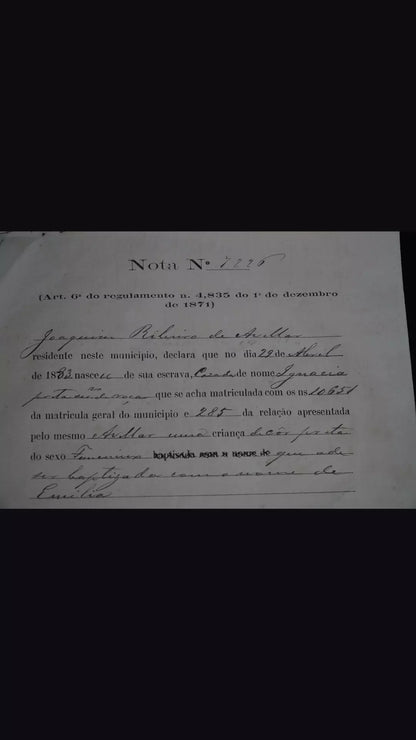 Nota Nº 7226
(Art. 6º do regulamento n. 4,835 do 1º de dezembro
de 1871)
Joaquim Ribeiro de Avellar
residente neste municipio, declara que no dia 29 de Abril
de 1882 nasceu de sua escrava, Casada de nome Ignacia
preta que se acha matriculada com os ns 10651
da matricula geral do municipio e 285 da relação apresentada
pelo mesmo Avellar uma criança de côr preta
do sexo Femenino baptisada com o nome de que ade
ser baptizada com o nome de
Emilia